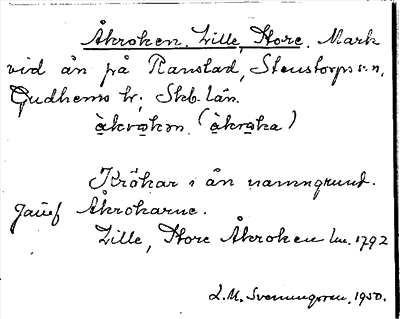 Åkroken. Lille, Store. Mark
vid ån på Ranstad, Stenstorps sn,
Gudhems hr; Skb. län.
àkrokən. (àkroka)
Krökar i ån namngrund.
Jämf Åkrokarne.
Lille, Store Åkroken lm. 1792
L.M. Svenungsson, 1950.